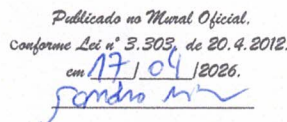 Publicado no Mural Oficial.
Conforme Lei nº 3.303, de 20.4.2012.
em 17/04/2026.